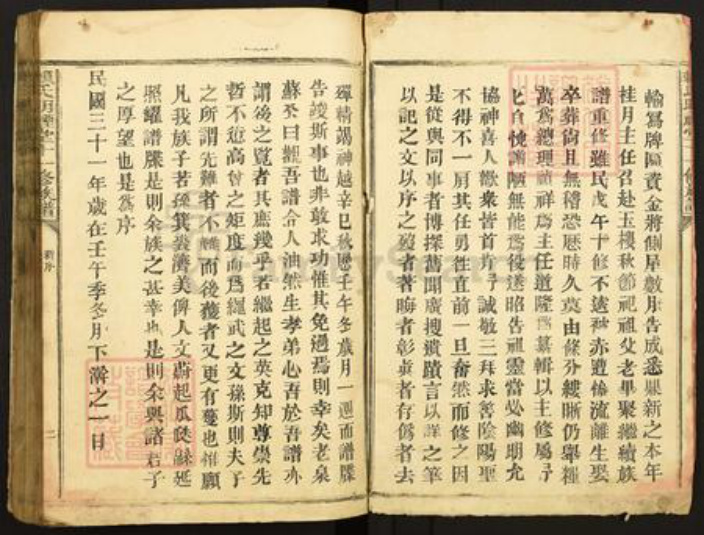 輸寫牌匾資金將側屋數月告成悉鼎新之本年
桂月主任召赴玉樓秋節祀祖父老畢聚繼續族
譜重修雖民戊午十修不遠秋赤遭慘流離生娶
卒葬尚且無稽恐歷時久莫由條分縷晰仍舉輕
萬為總理禎祥為主任道隆為纂輯以主修屬予
予自愧譾陋無能為役遂昭告祖靈當必幽明允
協神喜人歡衆皆首肯予誠敬三拜求著陰陽聖
不得不一肩其任勇往直前一旦奮然而修之因
是從與同事者博探舊聞廣搜遺蹟言以詳之筆
以記之文以序之殁者著晦者彰棄者存僞者去
殫精竭神越辛巳秋歷壬午冬歲月一週而譜牒
告竣斯事也非敢求功惟其免過焉則幸矣老泉
蘇公曰觀吾譜令人油然生孝弟心吾於吾譜亦
謂後之覽者其庶幾乎若繼起之英克知尊崇先
哲不愆高曾之矩度而為繩武之文孫斯則夫子
之所謂先難者不難而後獲者又更有獲也惟願
凡我族子若孫箕裘濟美俾人文蔚起瓜瓞綿延
照耀譜牒是則余族之甚幸也是則余與諸君子
之厚望也是為序
民國三十一年歲在壬午季冬月下澣之一日
新序
二